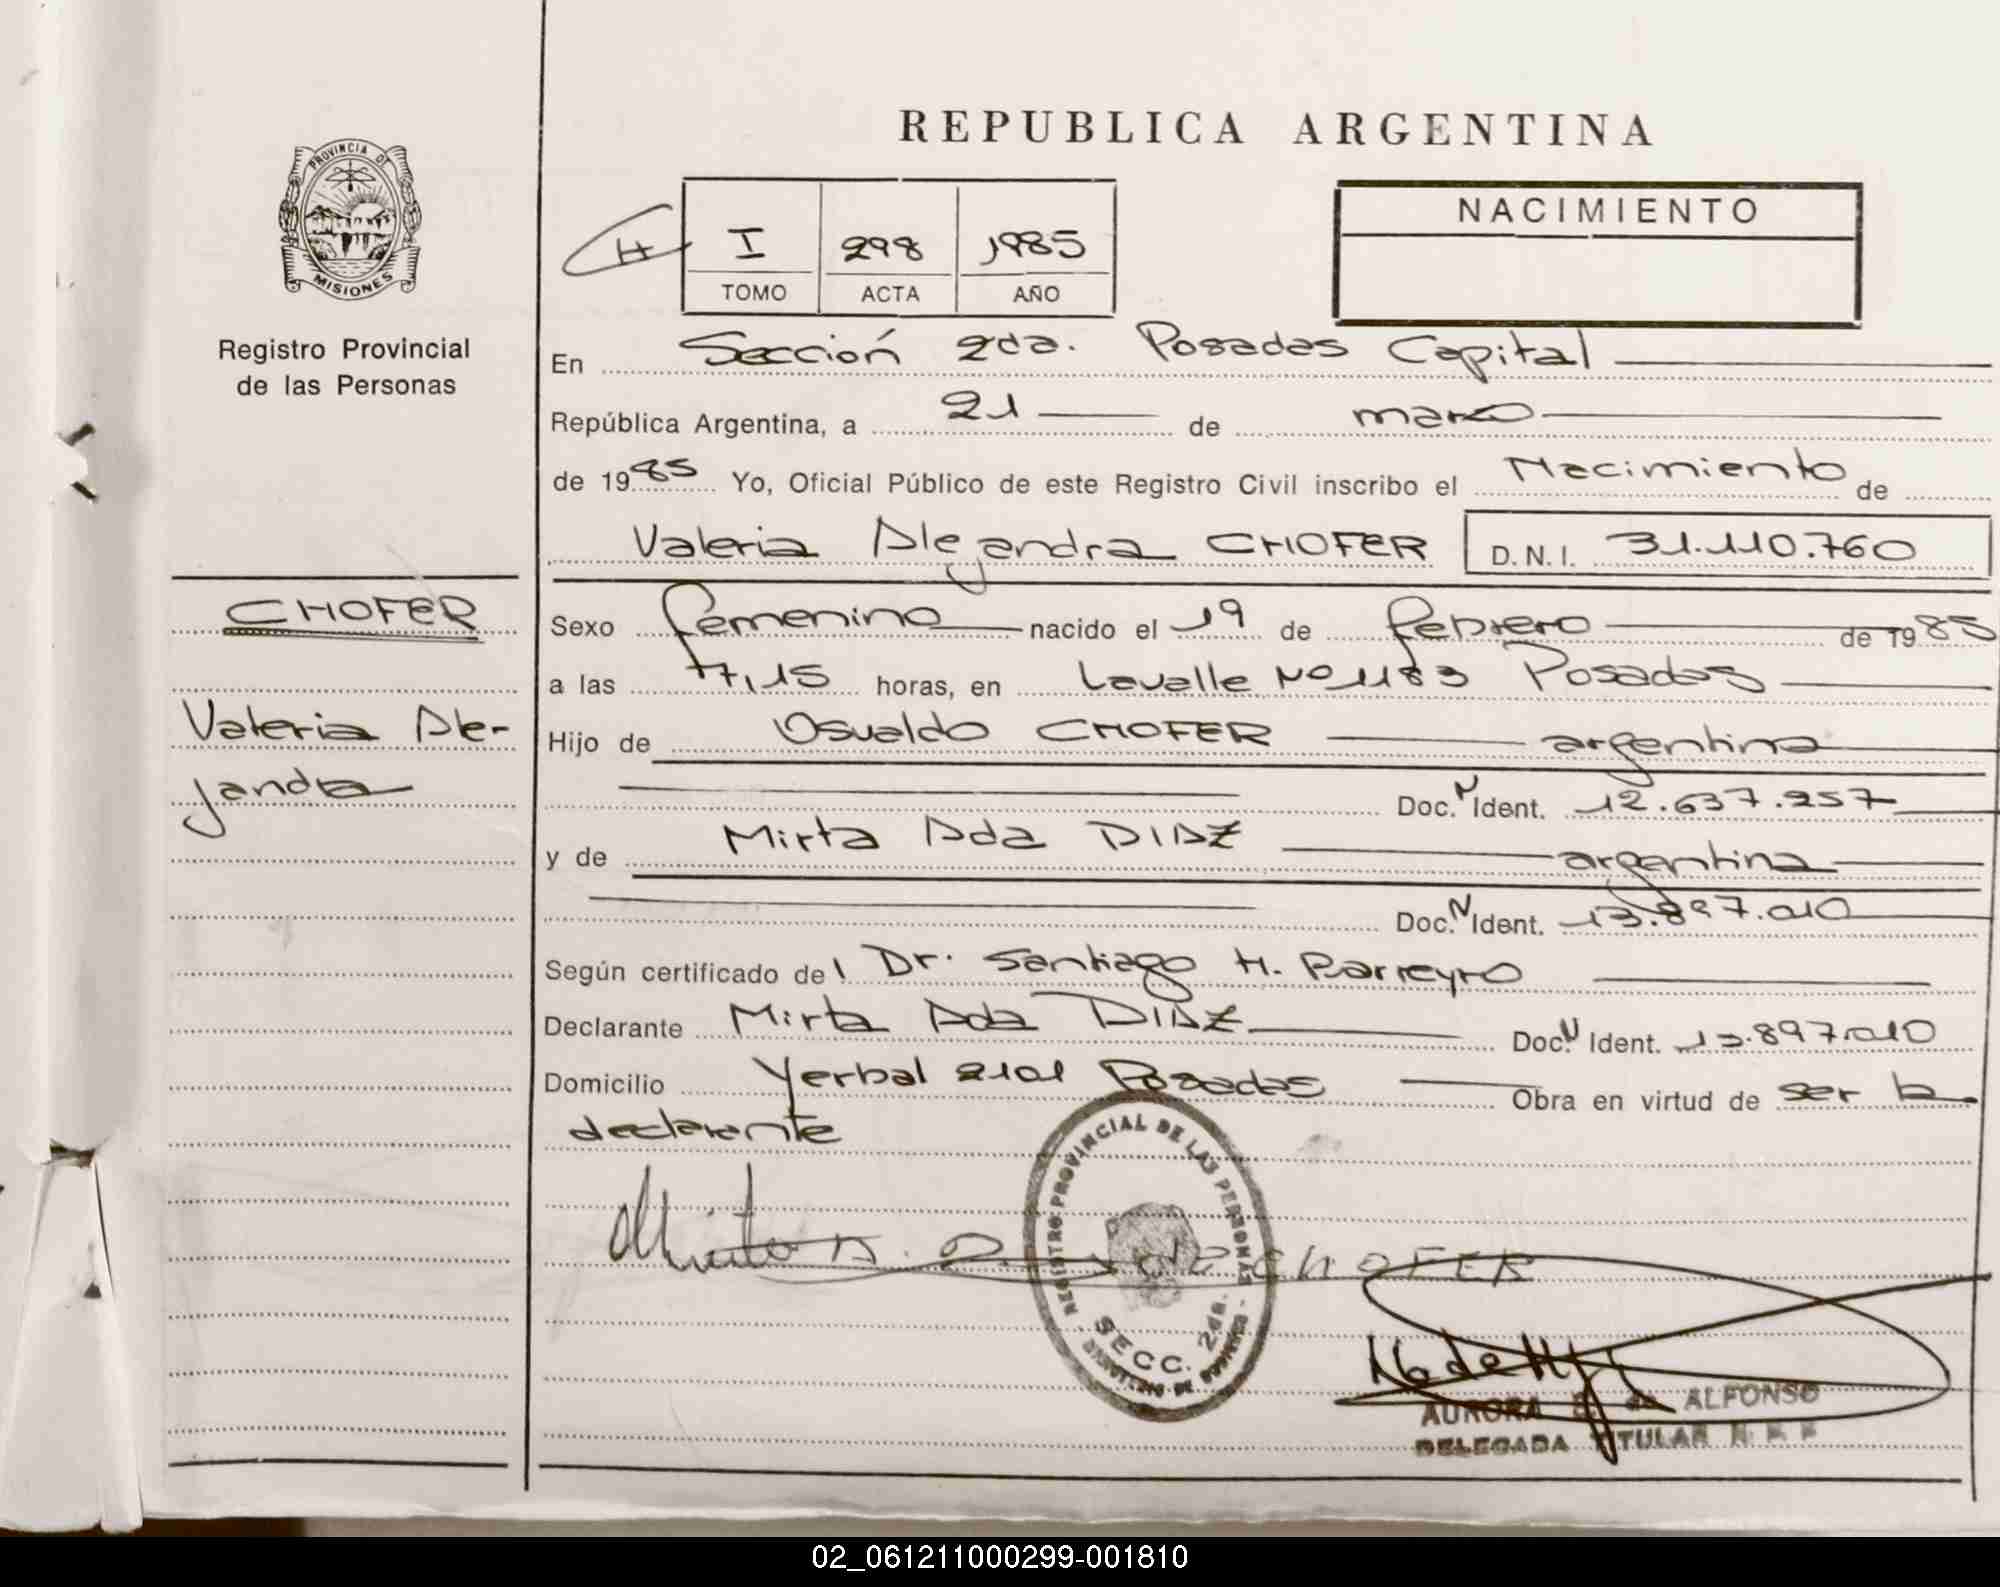 REPUBLICA ARGENTINA
PROVINCIA DE
MISIONES
Registro Provincial
de las Personas
H
I 298 1985
TOMO ACTA AÑO
NACIMIENTO
En Sección 2da. Posadas Capital
República Argentina, a 21 de marzo
de 1985 Yo, Oficial Público de este Registro Civil inscribo el Nacimiento de
Valeria Alejandra CHOFER D.N.I. 31.110.760
CHOFER
Valeria Ale-
jandra
Sexo femenino nacido el 19 de febrero de 1985
a las 17,15 horas, en Lavalle Nº 1183 Posadas
Hijo de Osvaldo CHOFER argentina
Doc. N Ident. 12.637.257
y de Mirta Ada DIAZ argentina
Doc. N Ident. 13.897.010
Según certificado de Dr. Santiago H. Barreyro
Declarante Mirta Ada DIAZ Doc. N Ident. 13.897.010
Domicilio Yerbal 2101 Posadas Obra en virtud de ser la
declarante
REGISTRO PROVINCIAL DE LAS PERSONAS
SECC. 2da.
CHOFER
AURORA de ALFONSO
DELEGADA TITULAR
02_061211000299-001810